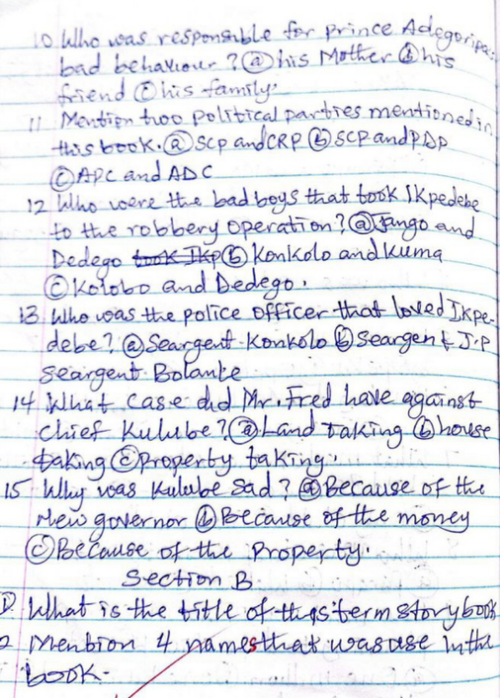 10 Who was responsible for prince Adegoripa
bad behaviour? ⓐ his Mother ⓑ his
friend ⓒ his family.
11 Mention two political parties mentioned in
this book. ⓐ SCP and CRP ⓑ SCP and PDP
ⓒ APC and ADC
12 Who were the bad boys that took Ikpedebe
to the robbery operation? ⓐ Jango and
Dedego took Ikp ⓑ Konkolo and Kuma
ⓒ Kolobo and Dedego.
13 Who was the police officer that loved Ikpe-
debe? ⓐ Seargent Konkolo ⓑ Seargent J.P
Seargent Bolante
14 What case did Mr. Fred have against
Chief Kulube? ⓐ Land taking ⓑ house
taking ⓒ Property taking.
15 Why was Kulube sad? ⓐ Because of the
New governor ⓑ Because of the money
ⓒ Because of the Property.
Section B
What is the title of this term storybook
Mention 4 names that was use in the
book.